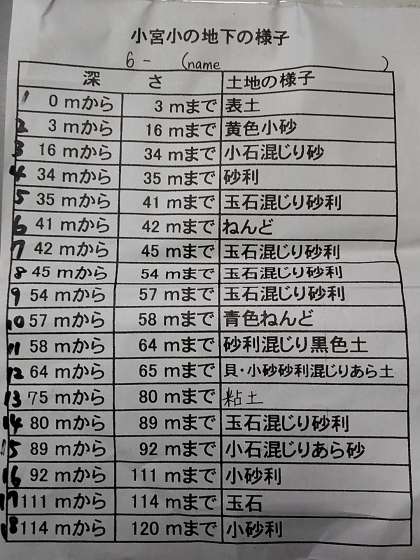 小宮小の地下の様子
6- (name )
深 さ 土地の様子
1 0 mから 3 mまで 表土
2 3 mから 16 mまで 黄色小砂
3 16 mから 34 mまで 小石混じり砂
4 34 mから 35 mまで 砂利
5 35 mから 41 mまで 玉石混じり砂利
6 41 mから 42 mまで ねんど
7 42 mから 45 mまで 玉石混じり砂利
8 45 mから 54 mまで 玉石混じり砂利
9 54 mから 57 mまで 玉石混じり砂利
10 57 mから 58 mまで 青色ねんど
11 58 mから 64 mまで 砂利混じり黒色土
12 64 mから 65 mまで 貝・小砂砂利混じりあら土
13 75 mから 80 mまで 粘土
14 80 mから 89 mまで 玉石混じり砂利
15 89 mから 92 mまで 小石混じりあら砂
16 92 mから 111 mまで 小砂利
17 111 mから 114 mまで 玉石
18 114 mから 120 mまで 小砂利